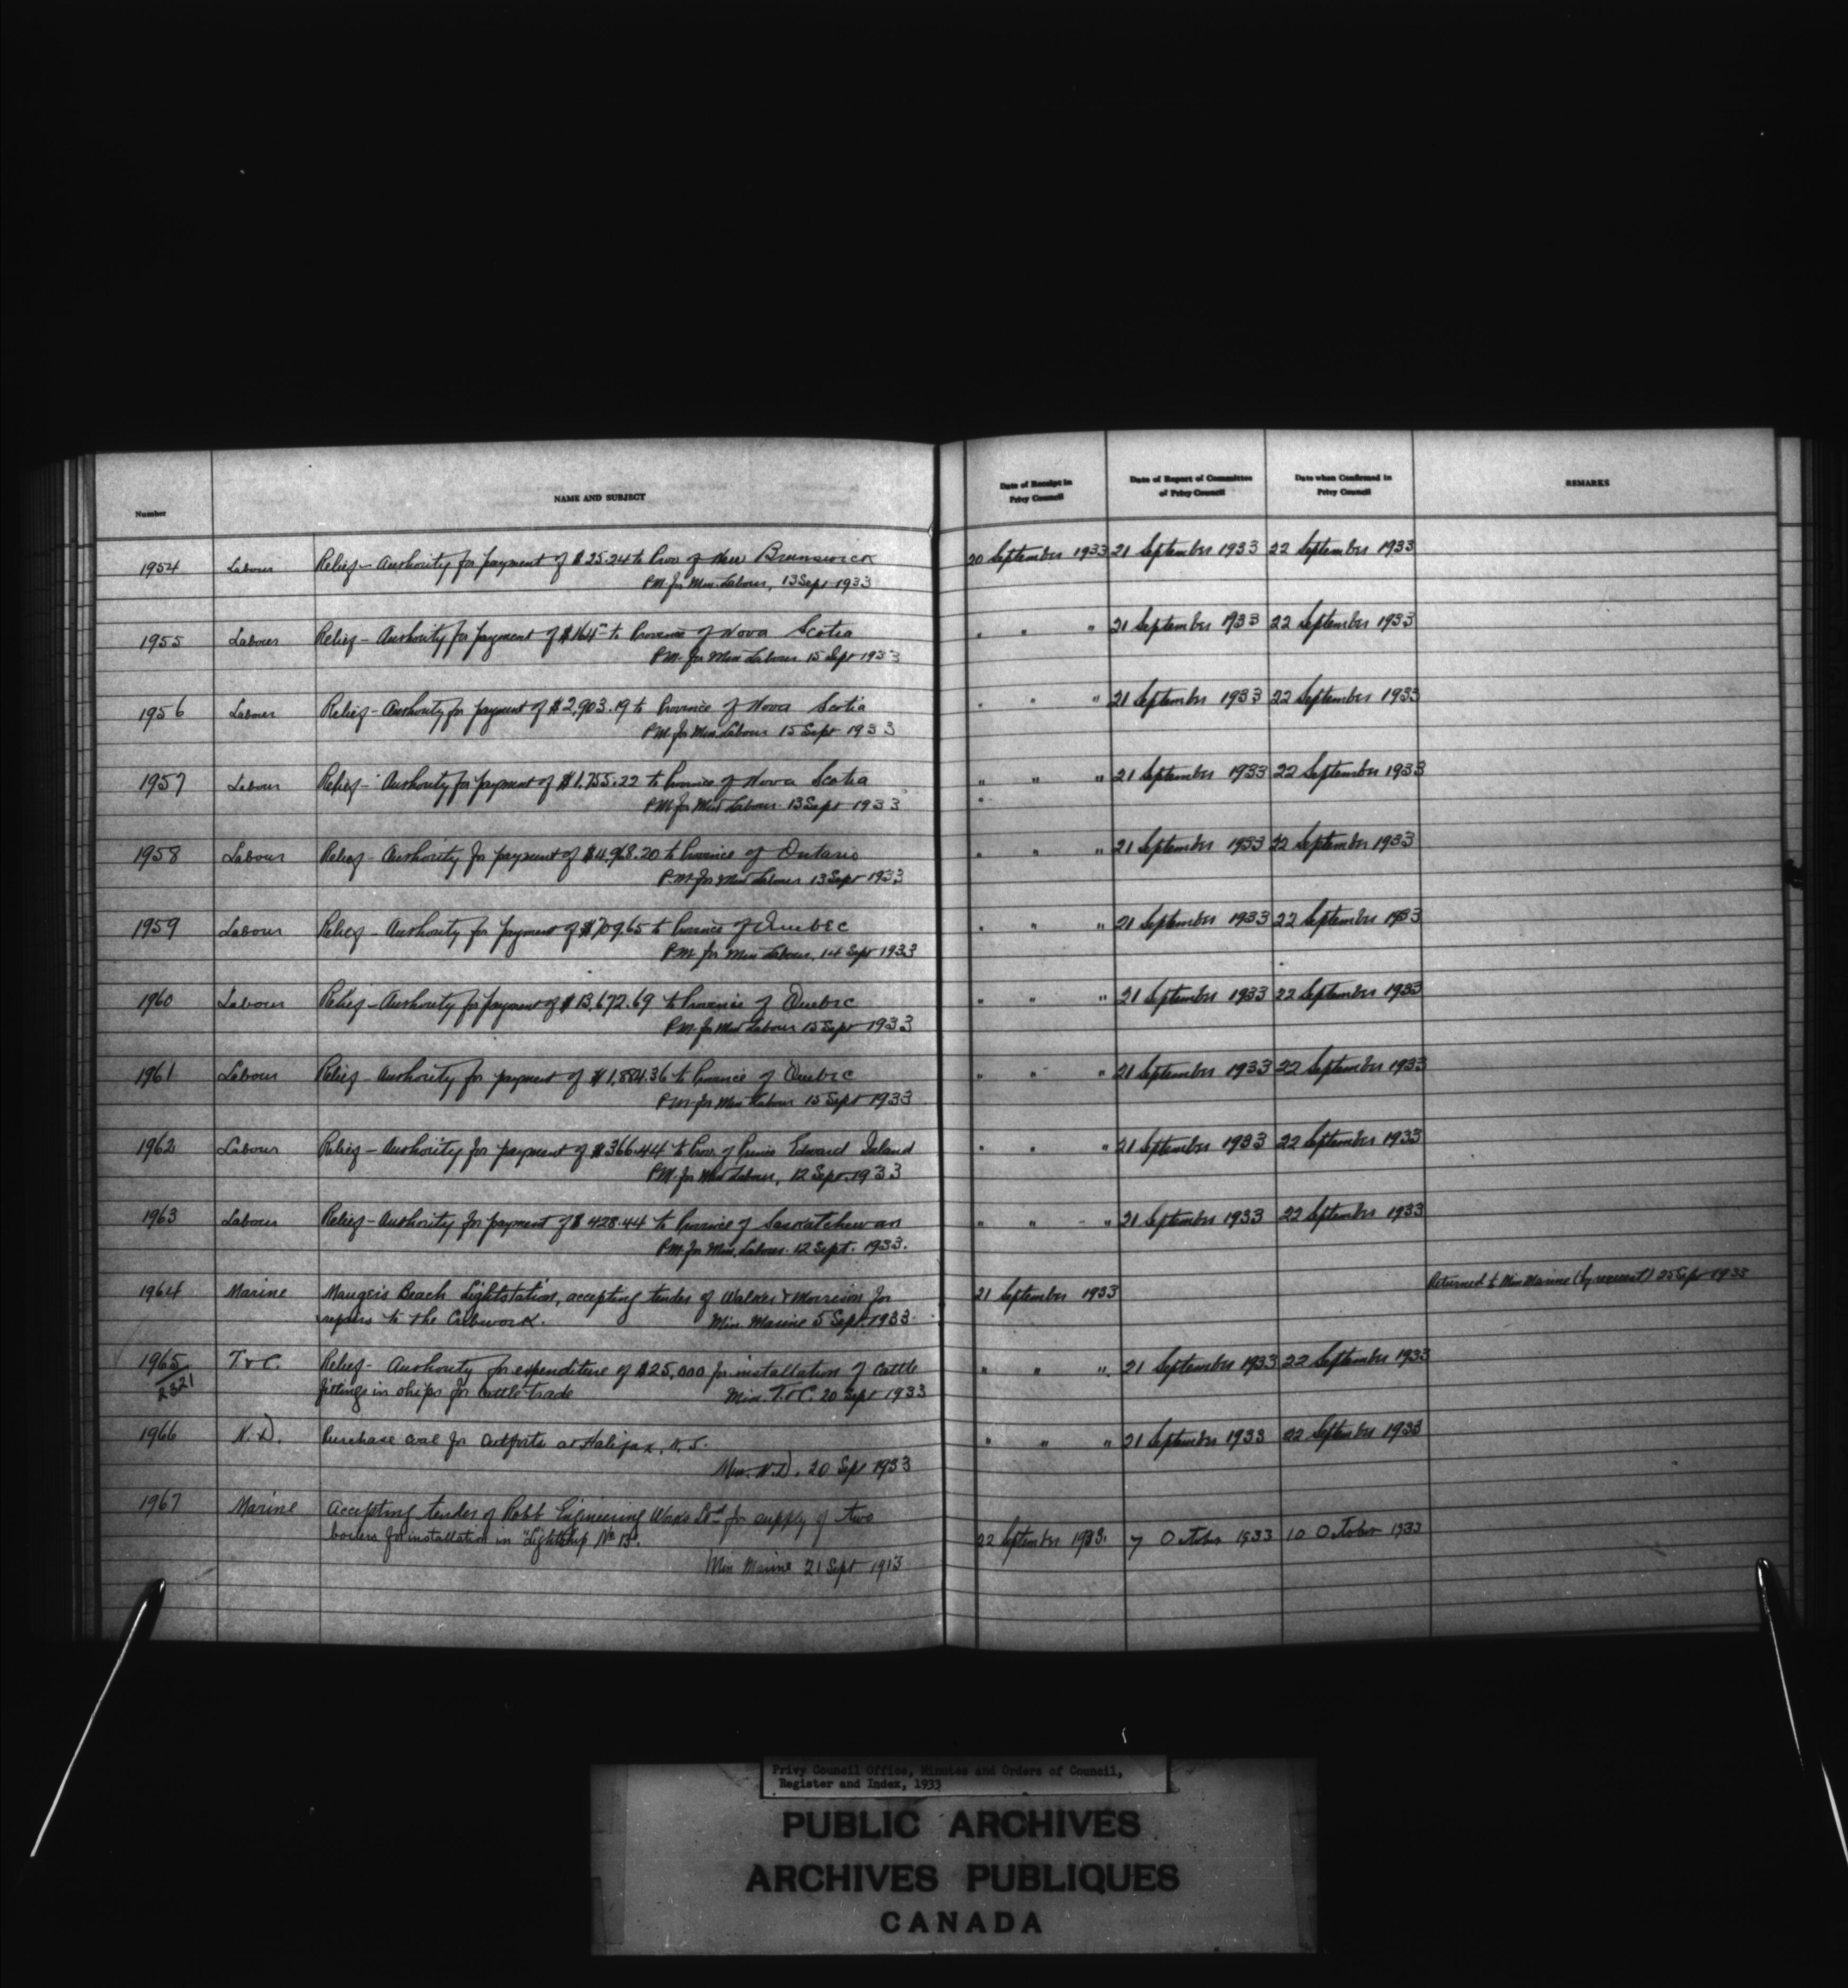 Number
NAME AND SUBJECT
Date of Receipt in Privy Council
Date of Report of Committee of Privy Council
Date when Confirmed in Privy Council
REMARKS
1954 Labour Relief - Authority for payment of $25.24 to Prov. of New Brunswick 20 September 1933 21 September 1933 22 September 1933
P.M. for Min. Labour, 13 Sept 1933
1955 Labour Relief - Authority for payment of to Province of Nova Scotia " " " 21 September 1933 22 September 1933
P.M. for Min Labour 15 Sept 1933
1956 Labour Relief - Authority for payment of $2,903.19 to Province of Nova Scotia " " " 21 September 1933 22 September 1933
P.M. for Min Labour 15 Sept 1933
1957 Labour Relief - Authority for payment of $1,755.22 to Province of Nova Scotia " " " 21 September 1933 22 September 1933
P.M. for Min Labour 13 Sept 1933
1958 Labour Relief - Authority for payment of to Province of Ontario " " " 21 September 1933 22 September 1933
P.M. for Min Labour 13 Sept 1933
1959 Labour Relief - Authority for payment of $709.65 to Province of Quebec " " " 21 September 1933 22 September 1933
P.M. for Min Labour, 14 Sept 1933
1960 Labour Relief - Authority for payment of $13,672.69 to Province of Quebec " " " 21 September 1933 22 September 1933
P.M. for Min Labour 15 Sept 1933
1961 Labour Relief - Authority for payment of $1,884.36 to Province of Quebec " " " 21 September 1933 22 September 1933
P.M. for Min Labour 15 Sept 1933
1962 Labour Relief - Authority for payment of $366.44 to Prov. of Prince Edward Island " " " 21 September 1933 22 September 1933
P.M. for Min Labour, 12 Sept. 1933
1963 Labour Relief - Authority for payment of $428.44 to Province of Saskatchewan " " " 21 September 1933 22 September 1933
P.M. for Min. Labour 12 Sept. 1933.
1964 Marine Maugers Beach Lightstation, accepting tender of Walker & Morrison for 21 September 1933 Returned to Min Marine (by request) 25 Sept 1933
repairs to the Cribwork. Min. Marine 5 Sept 1933
1965 T & C. Relief - Authority for expenditure of $25,000 for installation of cattle " " " 21 September 1933 22 September 1933
2321 fittings in ships for cattle trade Min. T & C. 20 Sept 1933
1966 N.D. Purchase coal for outforts at Halifax, N.S. " " " 21 September 1933 22 September 1933
Min. N.D. 20 Sept 1933
1967 Marine Accepting tender of Robb Engineering Works Ltd for supply of two
boilers for installation in "Lightship No 15". 22 September 1933. 7 October 1933 10 October 1933
Min Marine 21 Sept 1913
Privy Council Office, Minutes and Orders of Council,
Register and Index, 1933
PUBLIC ARCHIVES
ARCHIVES PUBLIQUES
CANADA